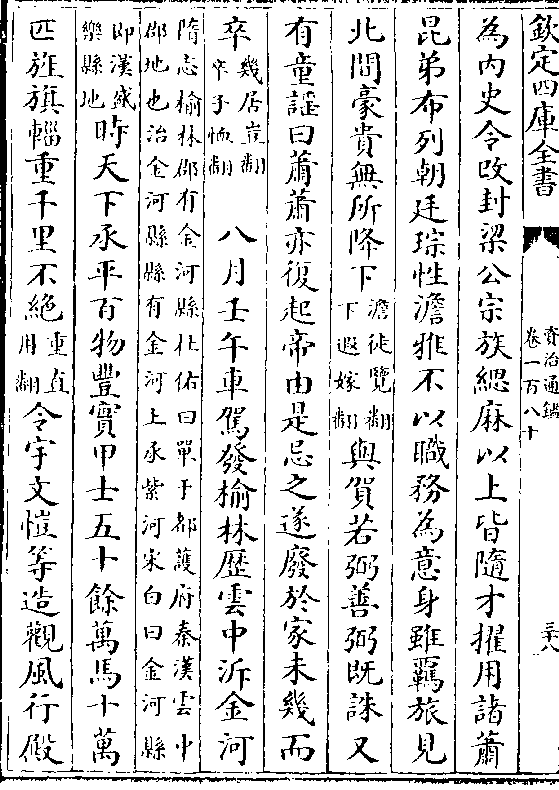 欽定四庫全書
資治通鑑
卷一百八十
三十八
為内史令改封梁公宗族緦麻以上皆隨才擢用諸蕭
昆弟布列朝廷琮性澹雅不以職務為意身雖羈旅見
北間豪貴無所降下澹徒覽翻下遐嫁翻與賀若弼善弼既誅又
有童謡曰蕭蕭亦復起帝由是忌之遂廢於家未幾而
卒幾居豈翻卒子恤翻 八月壬午車駕發榆林歷雲中泝金河
隋志榆林郡有金河縣杜佑曰單于都護府秦漢雲中
郡地也治金河縣縣有金河上承紫河宋白曰金河縣
即漢成樂縣地時天下承平百物豐實甲士五十餘萬馬十萬
匹旌旗輜重千里不絶重直用翻令宇文愷等造觀風行殿